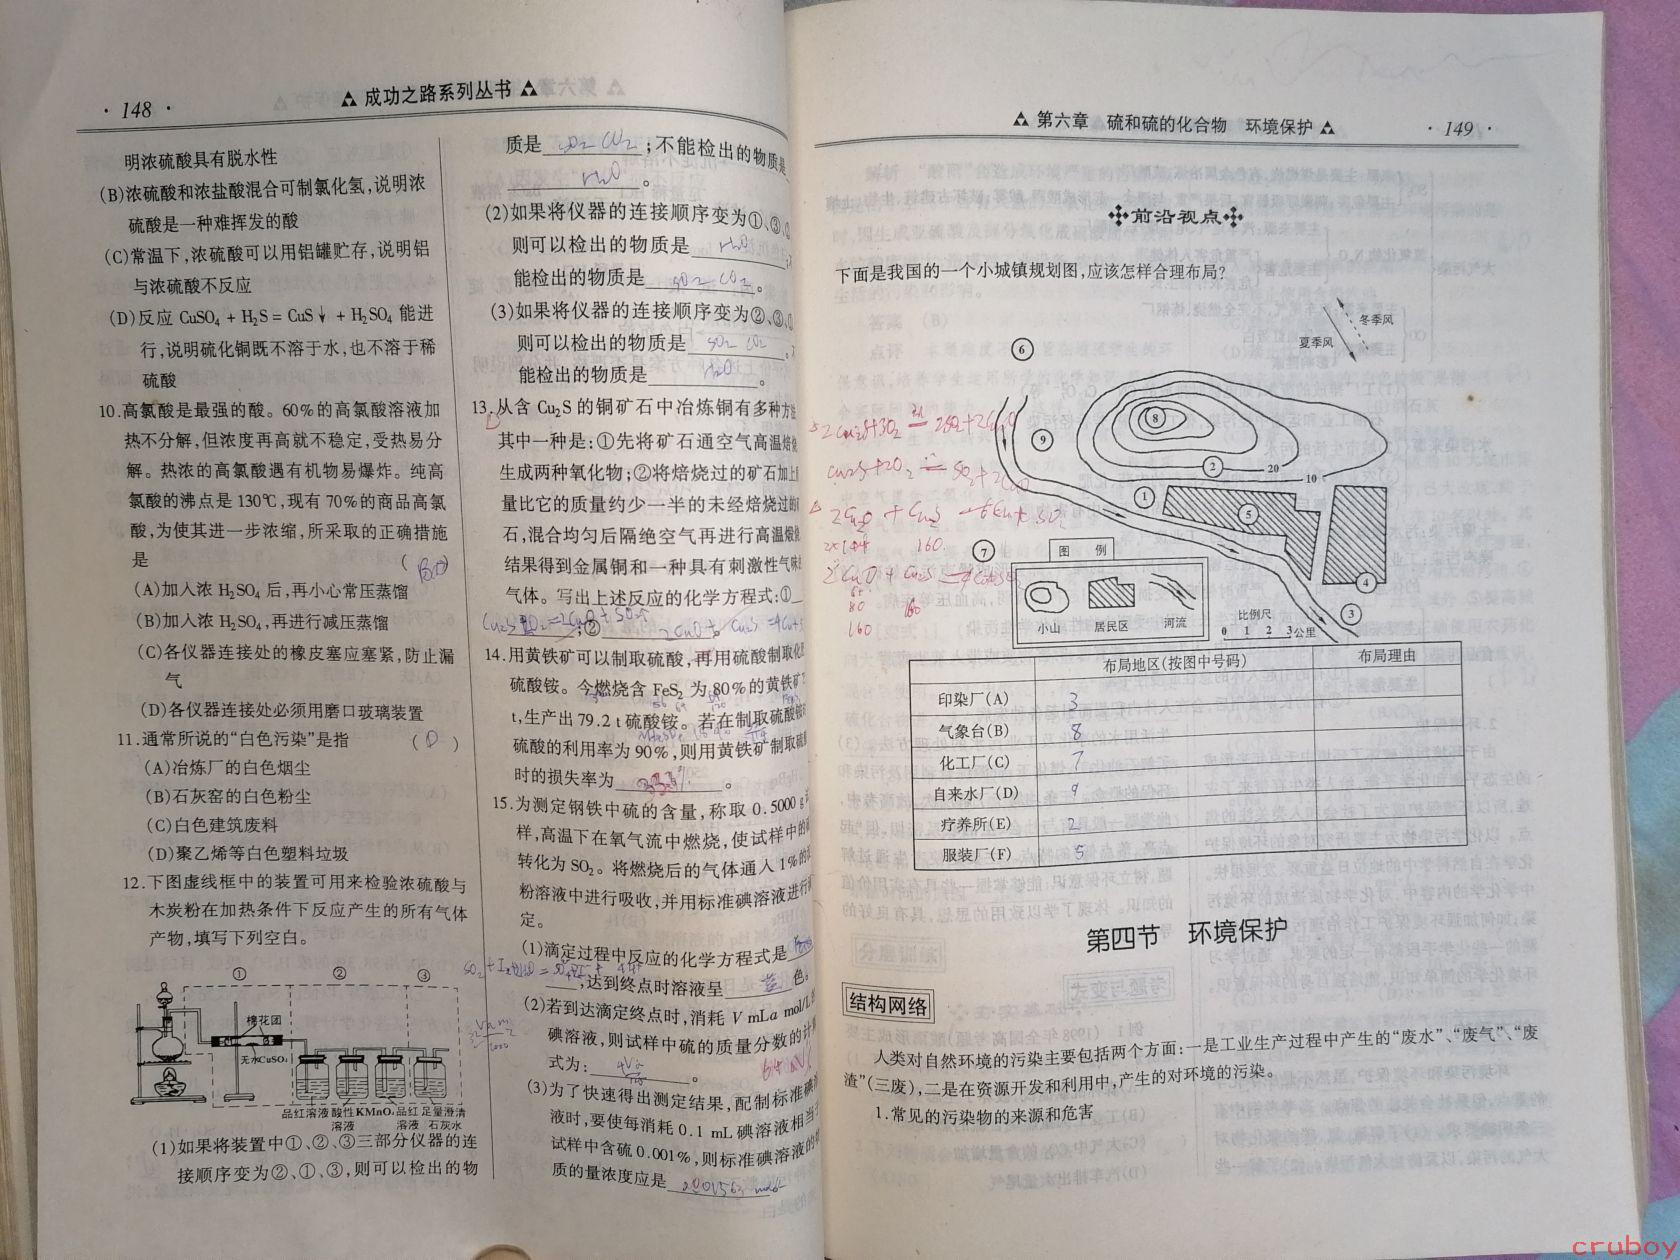 · 148 ·
成功之路系列丛书
明浓硫酸具有脱水性
(B)浓硫酸和浓盐酸混合可制氯化氢,说明浓
硫酸是一种难挥发的酸
(C)常温下,浓硫酸可以用铝罐贮存,说明铝
与浓硫酸不反应
(D)反应 CuSO₄ + H₂S = CuS↓ + H₂SO₄ 能进
行,说明硫化铜既不溶于水,也不溶于稀
硫酸
10.高氯酸是最强的酸。60%的高氯酸溶液加
热不分解,但浓度再高就不稳定,受热易分
解。热浓的高氯酸遇有机物易爆炸。纯高
氯酸的沸点是130℃,现有70%的商品高氯
酸,为使其进一步浓缩,所采取的正确措施
是 ( )
(A)加入浓 H₂SO₄ 后,再小心常压蒸馏
(B)加入浓 H₂SO₄,再进行减压蒸馏
(C)各仪器连接处的橡皮塞应塞紧,防止漏
气
(D)各仪器连接处必须用磨口玻璃装置
11.通常所说的“白色污染”是指 ( D )
(A)冶炼厂的白色烟尘
(B)石灰窑的白色粉尘
(C)白色建筑废料
(D)聚乙烯等白色塑料垃圾
12.下图虚线框中的装置可用来检验浓硫酸与
木炭粉在加热条件下反应产生的所有气体
产物,填写下列空白。
① ② ③
棉花团
无水CuSO₄
品红溶液 酸性KMnO₄ 品红 足量澄清
溶液 溶液 石灰水
(1)如果将装置中①、②、③三部分仪器的连
接顺序变为②、①、③,则可以检出的物
质是 SO₂ CO₂ ;不能检出的物质是
H₂O 。
(2)如果将仪器的连接顺序变为①、③、
则可以检出的物质是 H₂O
能检出的物质是 SO₂ CO₂ 。
(3)如果将仪器的连接顺序变为②、③、
则可以检出的物质是 SO₂ CO₂
能检出的物质是 H₂O 。
13.从含 Cu₂S 的铜矿石中冶炼铜有多种方
其中一种是:①先将矿石通空气高温焙
生成两种氧化物;②将焙烧过的矿石加上
量比它的质量约少一半的未经焙烧过的
石,混合均匀后隔绝空气再进行高温煅
结果得到金属铜和一种具有刺激性气味
气体。写出上述反应的化学方程式:①
;②
14.用黄铁矿可以制取硫酸,再用硫酸制取化
硫酸铵。今燃烧含 FeS₂ 为80%的黄铁矿
t,生产出79.2 t硫酸铵。若在制取硫酸铵
硫酸的利用率为90%,则用黄铁矿制取硫
时的损失率为 。
15.为测定钢铁中硫的含量,称取 0.5000 g
样,高温下在氧气流中燃烧,使试样中的
转化为SO₂。将燃烧后的气体通入1%的
粉溶液中进行吸收,并用标准碘溶液进行
定。
(1)滴定过程中反应的化学方程式是
,达到终点时溶液呈 蓝 色。
(2)若到达滴定终点时,消耗 V mL a mol/L
碘溶液,则试样中硫的质量分数的计
式为: 。
(3)为了快速得出测定结果,配制标准碘
液时,要使每消耗 0.1 mL碘溶液相当
试样中含硫0.001%,则标准碘溶液的
质的量浓度应是
第六章 硫和硫的化合物 环境保护
· 149 ·
前沿视点
下面是我国的一个小城镇规划图,应该怎样合理布局?
冬季风
夏季风
⑥
⑧
⑨
②
20
10
①
⑤
⑦
④
③
图 例
小山 居民区 河流
比例尺
0 1 2 3公里
布局地区(按图中号码) 布局理由
印染厂(A) 3
气象台(B) 8
化工厂(C) 7
自来水厂(D) 9
疗养所(E) 2
服装厂(F) 5
第四节 环境保护
结构网络
人类对自然环境的污染主要包括两个方面:一是工业生产过程中产生的“废水”、“废气”、“废
渣”(三废),二是在资源开发和利用中,产生的对环境的污染。
1.常见的污染物的来源和危害
cruboy